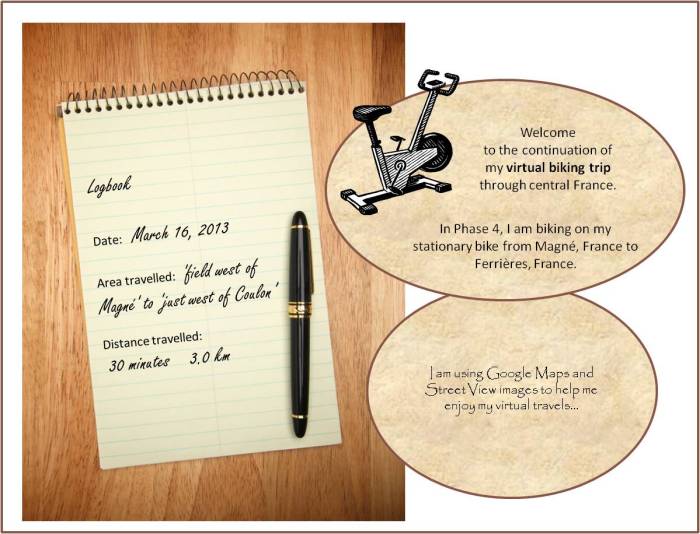 Logbook
Date: March 16, 2013
Area travelled: 'field west of
Magné' to 'just west of Coulon'
Distance travelled:
30 minutes 3.0 km
Welcome
to the continuation of
my virtual biking trip
through central France.
In Phase 4, I am biking on my
stationary bike from Magné, France to
Ferrières, France.
I am using Google Maps and
Street View images to help me
enjoy my virtual travels...